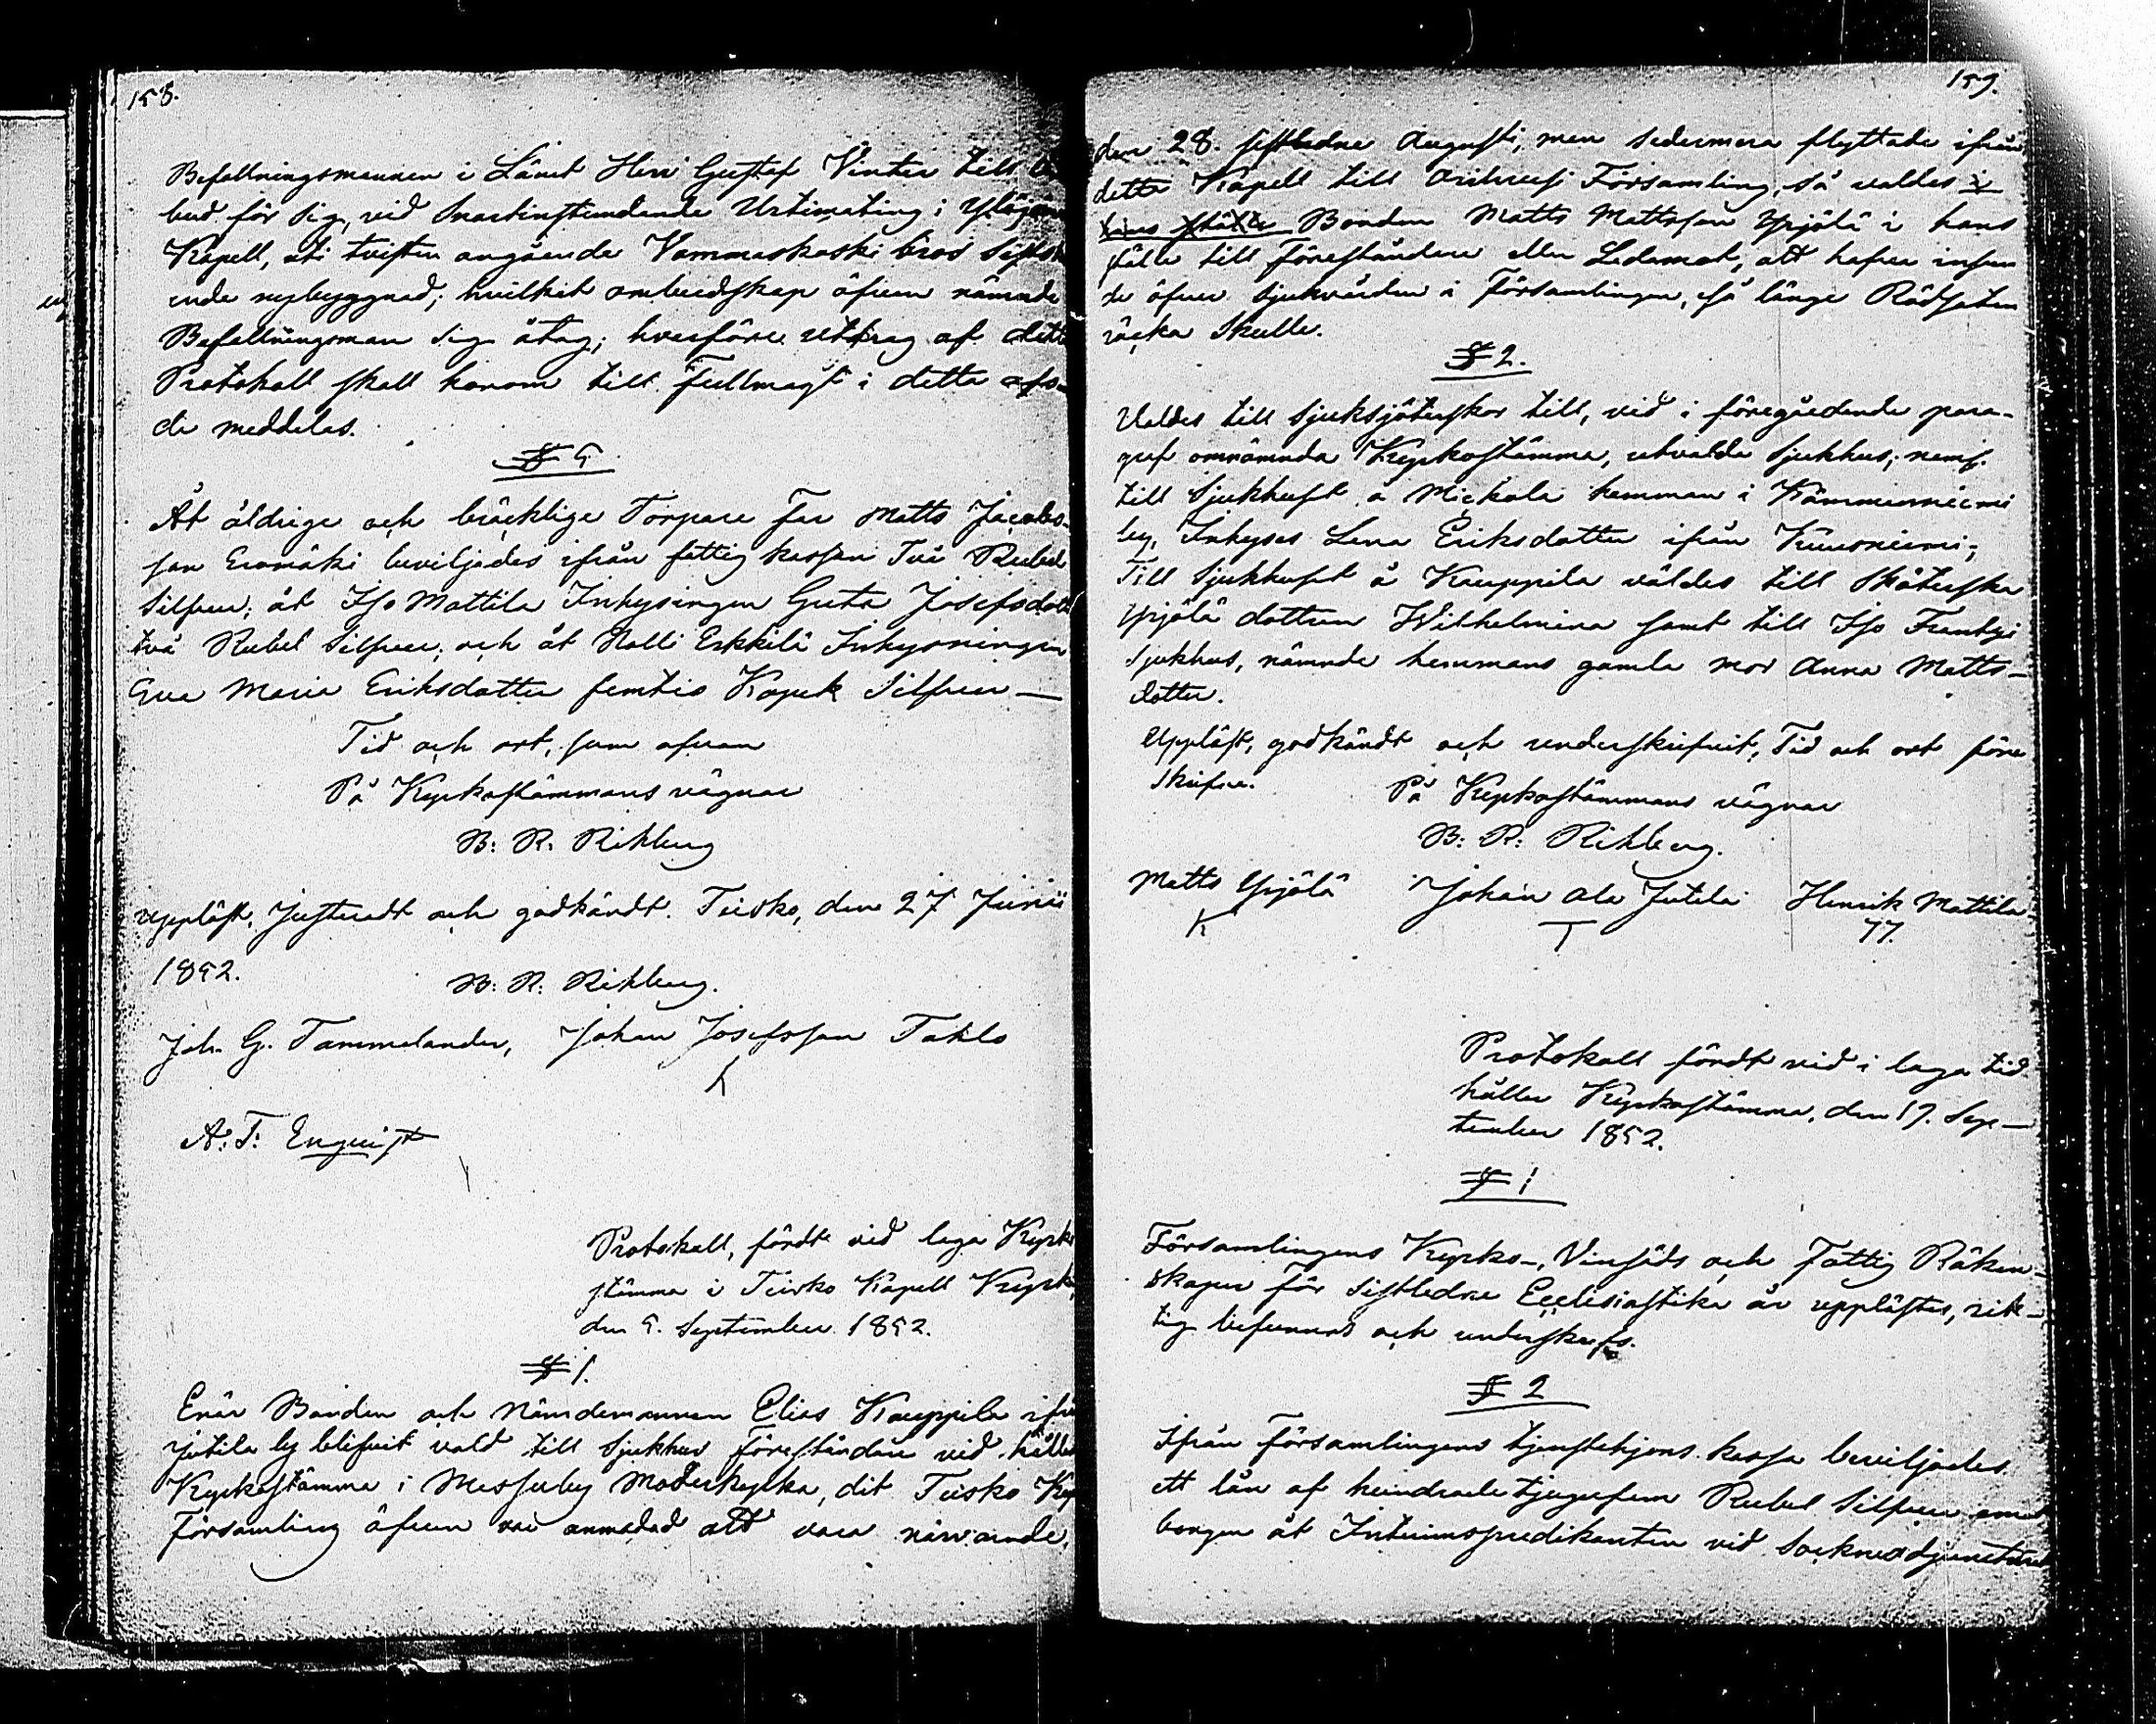 158.
Befallningsmannen i Länet Herr Gustaf Winter till
bud för sig, vid snartinstundande Urtimating i Ylöjärvi
Kapell, uti tvisten angående Vammaskoski bros
ende nybyggnad; hvilket ombudskap äfven nämnde
Befallningsman sig åtog; hvarföre utdrag af detta
Protokoll skall honom till Fullmagt i detta afse-
de meddelas.
§ 5
Åt åldrige och bräcklige Torpare Far Matts Jacobs-
son Eromäki beviljades ifrån fattig kassan Två Rubel
Silfver; åt Iso Mattila Inhysingen Greta Josefsdott
två Rubel Silfver; och åt Nalli Erkkilä Inhysningen
Eva Maria Eriksdotter femtio Kopek Silfver —
Tid och ort, som ofvan
På Kyrkostämmans vägnar
B: R: Rihlberg
Uppläst, Justeradt och godkändt. Teisko, den 27 Junii
1852.
B: R: Rihlberg.
Joh. G. Tammelander, Johan Josefsson Tahlo
A: F: Enqvist
Protokoll, fördt vid laga Kyrko
stämma i Teisko Kapell Kyrka,
den 5. September 1852.
§ 1.
Enär Bonden och Nämdemannen Elias Kauppila ifrån
Jutila by blifvit vald till Sjukhus Föreståndare vid hållen
Kyrkostämma i Messuby Moderkyrka, dit Teisko Kap
Församling äfven var anmodad att vara närvarande,
159.
den 28. sistledne Augusti, men sedermera flyttade ifrån
detta Kapell till Orihvesi Församling, så valdes i
hans ställe Bonden Matts Mattsson Yrjölä i hans
ställe till Föreståndare eller Ledamot, att hafva inseen
de öfver sjukvården i Församlingen, så länge Rödsoten
räcka skulle.
§ 2.
Valdes till Sjuksjöterskor till, vid i föregående para-
graf omnämnda Kyrkostämma, utvalda Sjukhus; neml.
till Sjukhuset å Mickola hemman i Kämmenniemi
by, Inhyses Lena Eriksdotter ifrån Kämmenniemi;
Till Sjukhuset å Kauppila valdes till Sköterska
Yrjölä dottren Wilhelmina samt till Iso Frantzi
Sjukhus, nämnde hemmans gamla mor Anna Matts-
dotter.
Uppläst, godkändt och underskrifvit, Tid och ort före
skrifva.
På Kyrkostämmans vägnar
B: R: Rihlberg.
Matts Yrjölä Johan Ala Jutila Henrik Mattila
Protokoll fördt vid i laga tid
hållen Kyrkostämma, den 19. Sep-
tember 1852.
§ 1
Församlingens Kyrko-, Vinsäds och Fattig Räken-
skaper för sistledne Ecclesiastika år upplästes, rik-
tig befunnos och underskrefs.
§ 2
Ifrån Församlingens tjenstehjons kassa beviljades
ett lån af hundrade tjugufem Rubel Silfver emot
borgen åt Interimspredikanten vid Sockneadjuncturen